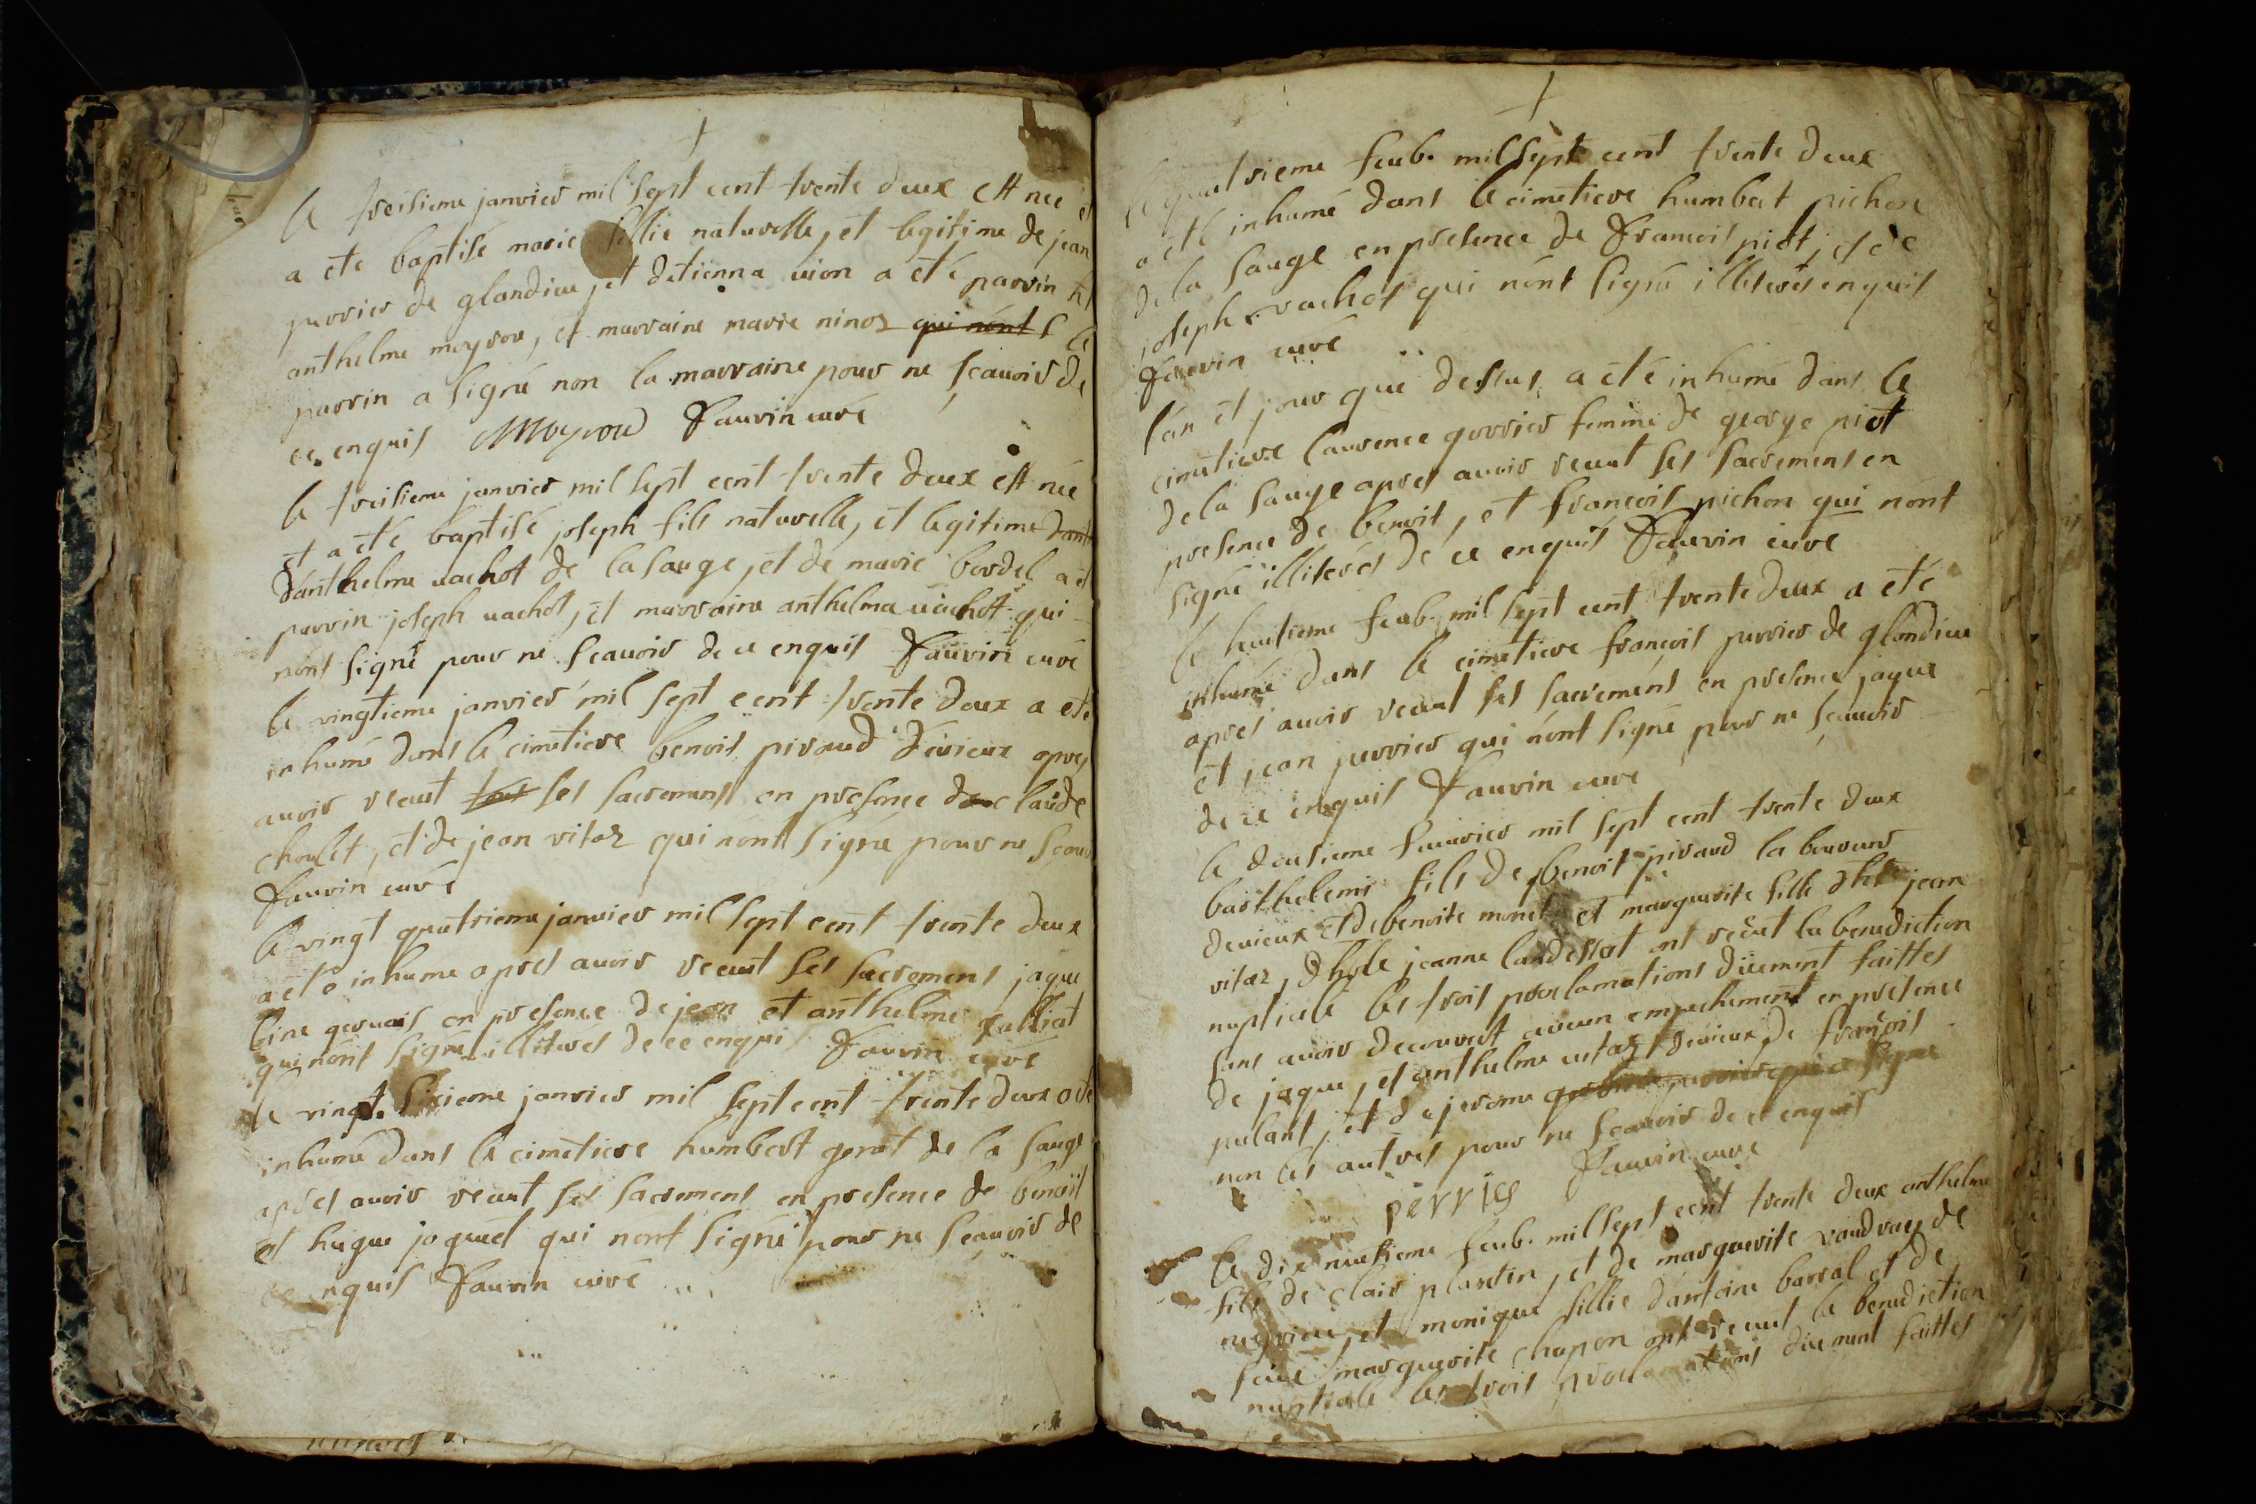 le treisieme janvier mil sept cent trente deux est nee et
a ete baptisé marie fillie naturelle, et legitime de jean
perrier de glandieu, et detienna vion a eté parrin
anthelme moyrou, et marraine marie ninoz qui nónt s le
parrin a signé non la marraine pour ne scauoir de
ce enquis Moyroud Fauvin curé
le treisieme janvier mil sept cent trente deux est née
et a eté baptisé joseph fils naturelle, et legitime dant
dánthelme vachot de la sauge, et de marie bordel a et
parrin joseph vachot, et marraine anthelma vachot qui
nónt signé pour ne scauoir de ce enquis Fauvin curé
le vingtieme janvier mil sept cent trente deux a ete
inhumé dans le cimetiere benoit piraud dévieux apres
auoir recut tous ses sacremens en presence de claude
choulet, et de jean vitoz qui nont signé pour ne scauoi
Fauvin curé
le vingt quatrieme janvier mil sept cent trente deux
a eté inhume apres auoir recut ses sacremens jaque
line geruais en presence de jean et anthelme gulliat
qui nónt signé illiterés de ce enquis Fauvin curé
le vingt. sixieme janvier mil sept cent trente deux a ete
inhumé dans le cimetiere humbert genet de la sauge
apres auoir recut ses sacremens en presence de benoit
et hugue joquet qui nont signé pour ne scauoir de
ce enquis Fauvin curé
le quatrieme feub. mil sept cent trente deux
a eté inhumé dans le cimetiere humbert pichon
de la sauge en presence de Francois piot, et de
joseph vachot qui nónt signé illiterés enquis
Fauvin curé
lán et jour que dessus a eté inhumé dans le
cimetiere laurence perrier femme de george piot
de la sauge apres auoir recut ses sacremens en
presence de benoit, et françois pichon qui nónt
signé illiterés de ce enquis Fauvin curé
le huitieme feub. mil sept cent trente deux a eté
inhumé dans le cimetiere françois perrier de glandieu
apres auoir recut ses sacremens en presence jaque
et jean perrier qui nónt signé pour ne scauoir
de ce enquis Fauvin curé
le deusieme feuvrier mil sept cent trente deux
barthelemi fils de benoit piraud laboureur
devieux et de benoite monet et marguerite fille
jean
vitoz, jeanne ont recut la benediction
nuptiale les trois proclamations düement faittes
sans auoir decouvert aucun empechement en presence
de jaque, et anthelme vitoz devieux de françois
pulant, et de jerome perrier qui a signé
non les autres pour ne scauoir de ce enquis
perrier Fauvin curé
le dix neufieme feub. mil sept cent trente deux anthelme
fils de clair plantin, et de marguerite vaudray de
negrieu, et monique fillie dántoine barral et de
feüe marguerite chapon ont recut la benediction
nuptiale les trois proclamations düement faittes